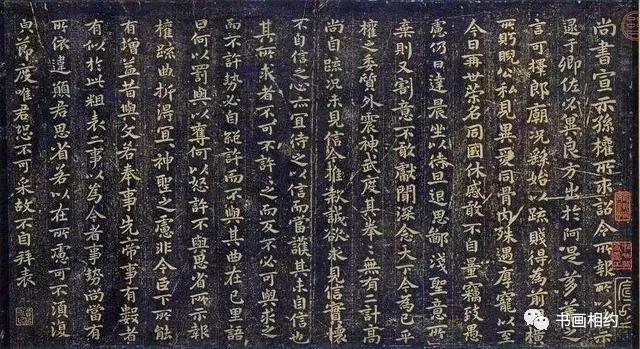 尚書宣示孫權所求詔令所報所以博示
逮于卿佐必冀良方出於阿是芻蕘之
言可擇郎廟況繇始以疏賤得為前恩橫
所眄睨公私見異愛同骨肉殊遇厚寵以至
今日再世榮名同國休慼敢不自量竊致愚
慮仍日達晨坐以待旦退思鄙淺聖意所
棄則又割意不敢獻聞深念天下今為已平
權之委質外震神武度其拳〻無有二計高
尚自疏況未見信今推款誠欲求見信實懷
不自信之心亦宜待之以信而當護其未自信也
其所求者不可不許許之而反不必可與求之
而不許勢必自絕許而不與其曲在己里語
曰何以罰與以奪何以怒許不與思省所示報
權疏曲折得宜神聖之慮非今臣下所能
有增益昔與文若奉事先帝事有數者
有似於此粗表二事以為今者事勢尚當有
所依違願君思省若以在所慮可不須復
貌節度唯君恐不可采故不自拜表
书画相约